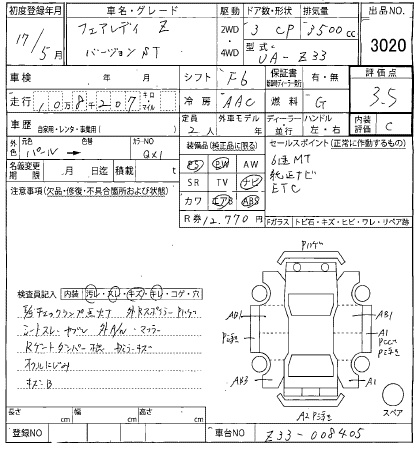 初度登録年月 車名・グレード 駆動 ドア数・形状 排気量 出品NO.
17/5月 フェアレディ Z 2WD・4WD 3 CP 3500cc 3020
バージョン ST 型式 UA-Z33
車検 年 月 シフト F6 保証書 有・無 評価点
走行 10万8千207 キロ・マイル 冷房 AAC 燃料 G 3.5
車歴 自家用・レンタ・事業用( ) 定員 2人 外車モデル 年 ディーラー 並行 ハンドル 左・右 内装評価 C
外色 元色 パール 色替 カラーNO QX1 装備品(純正品に限る) セールスポイント(正常に作動するもの)
名義変更期限 月 日迄 積載 t PS PW AW 6速MT
注意事項(欠品・修復・不具合箇所および状態) SR TV ナビ 純正ナビ
カワ エアB ABS ETC
R券 12,770円 Fガラス トビ石・キズ・ヒビ・ワレ・リペア跡
検査員記入 内装 汚レ・スレ・キズ・キレ・コゲ・穴
シートスレ・ヤブレ 外A/n・マフラー
オイルにじみ
キズ=B
AB1 AB1
A1
AB3 A1
スペア
長さ cm 幅 cm 高さ cm
登録NO 車台NO Z33-008405